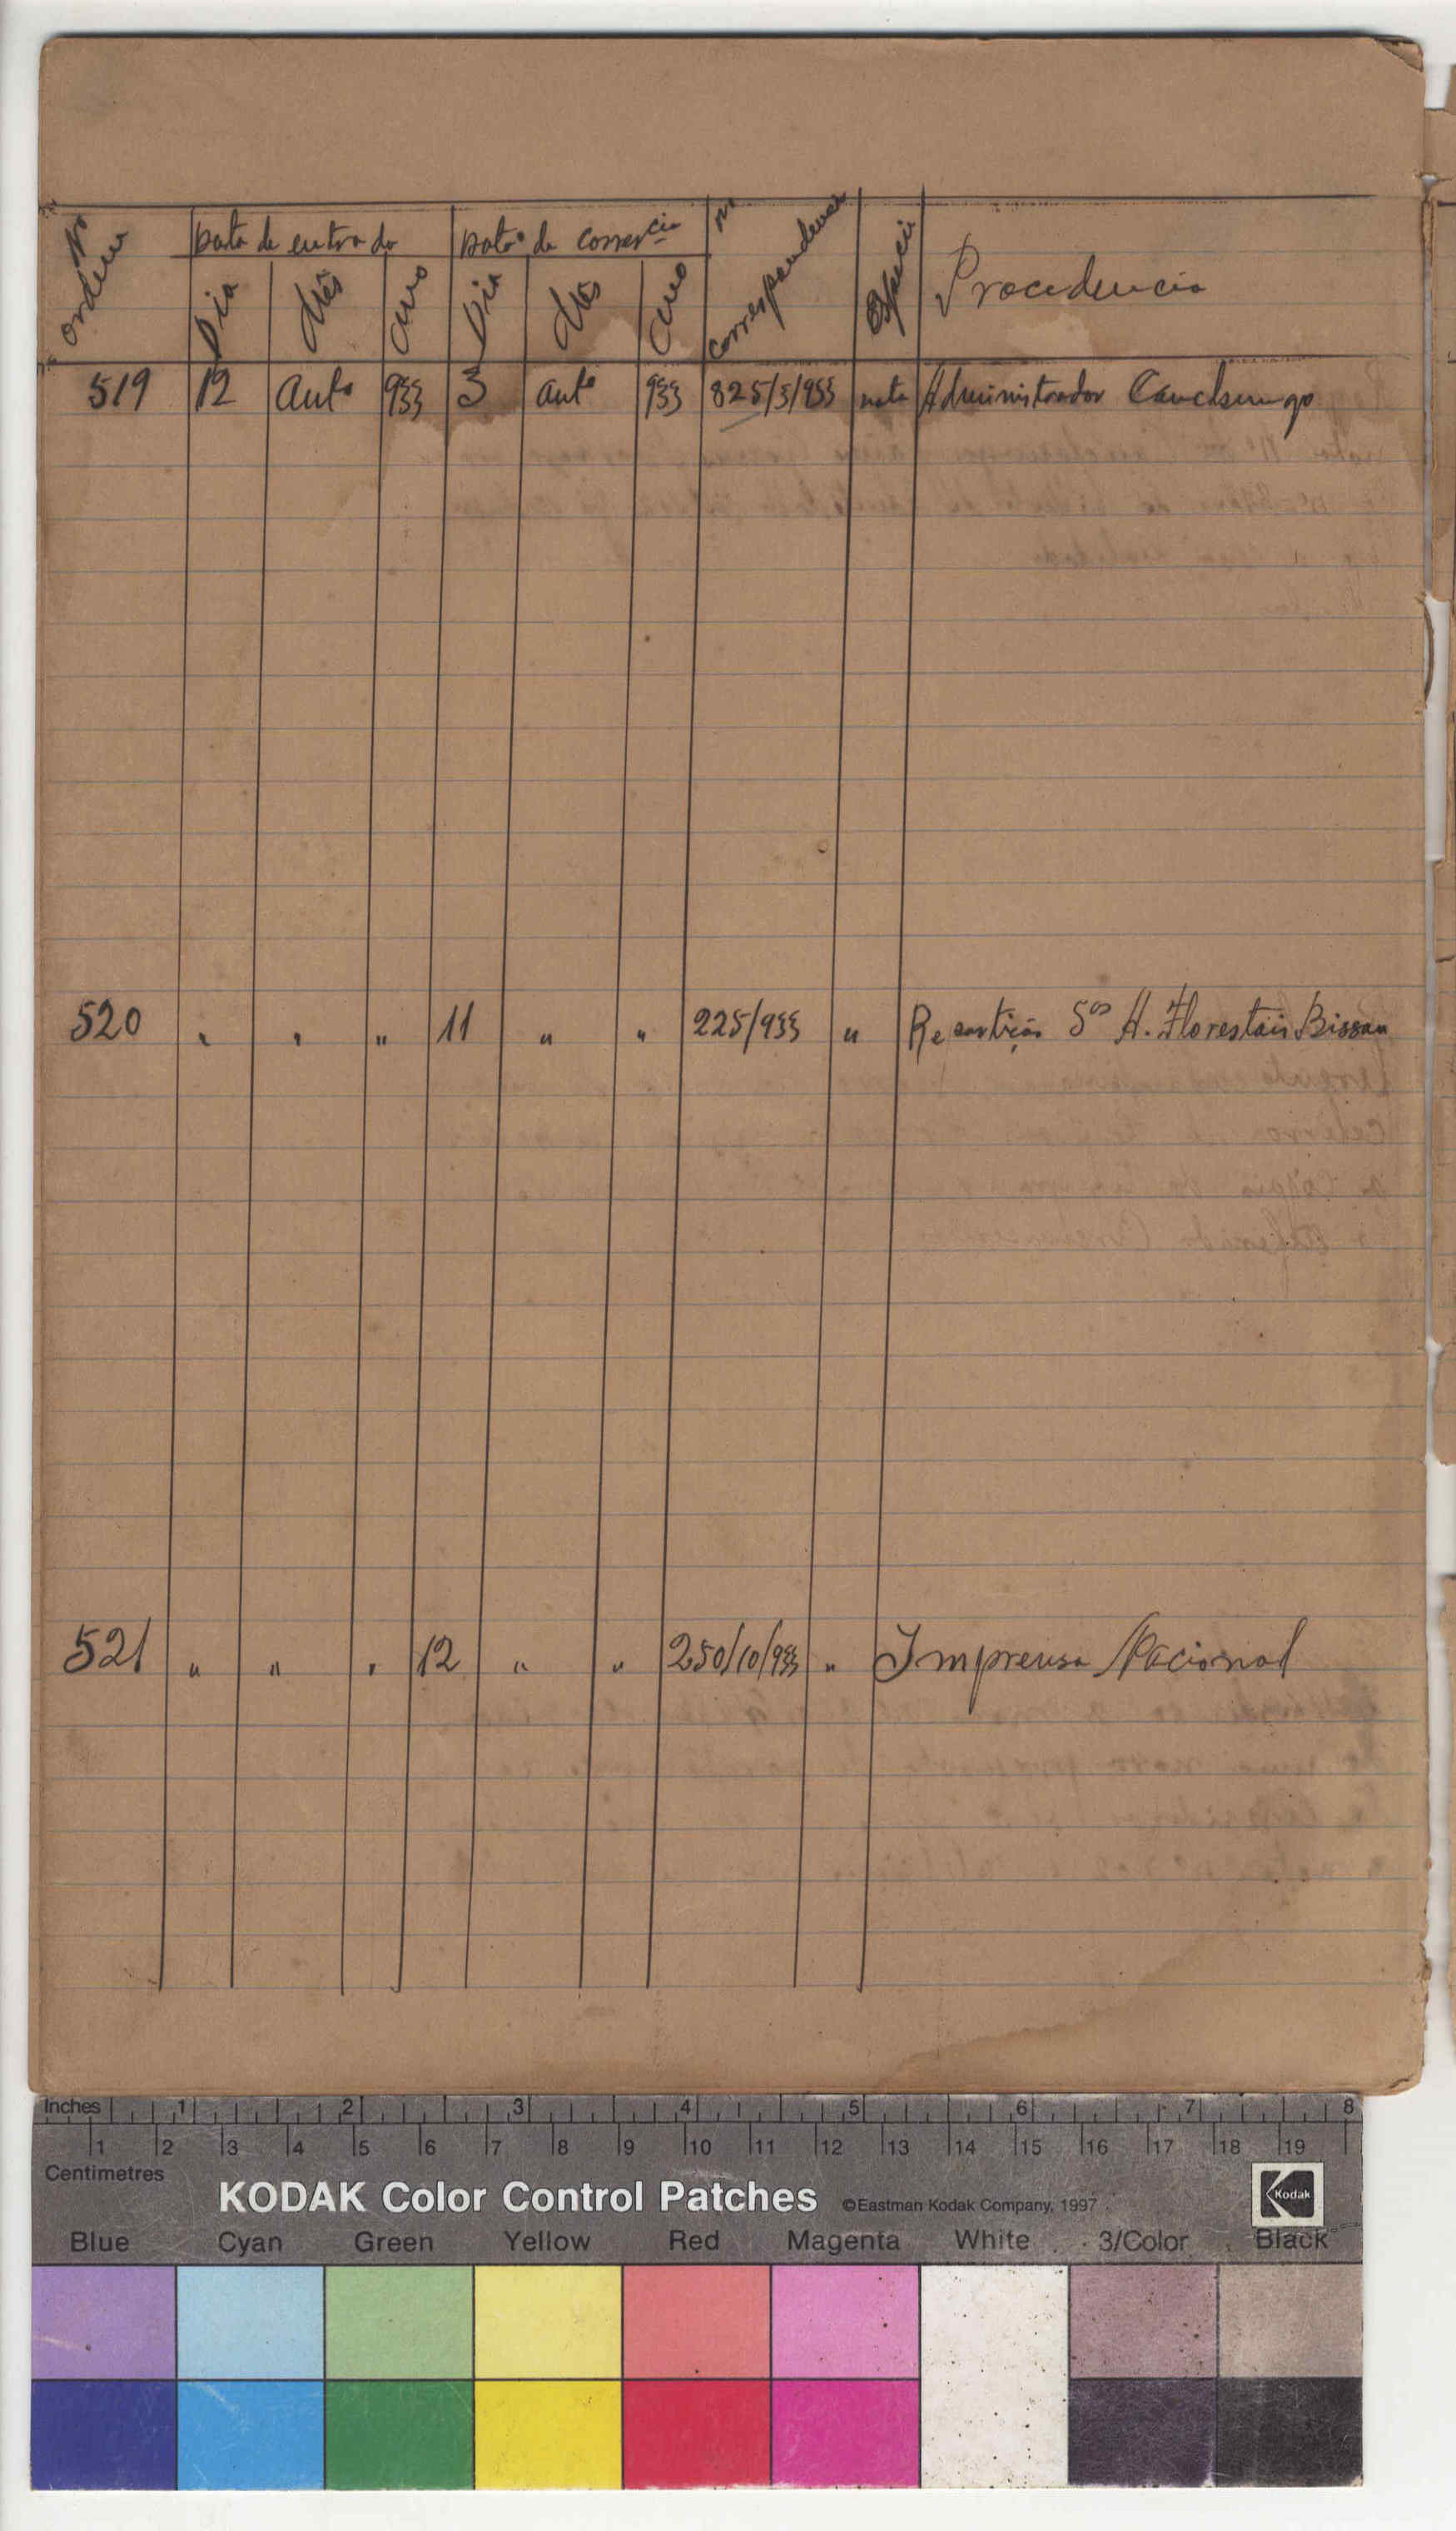 Nº ordem Data de entrada Data de correr.cia Nº correspondencia Especie Procedencia
Dia Mês Ano Dia Mês Ano
519 12 Outº 933 3 Outº 933 825/5/933 nota Administrador Canchungo
520 " " " 11 " " 225/933 " Repartição S.os A. Florestais Bissau
521 " " " 12 " " 250/10/933 " Imprensa Nacional
Inches 1 2 3 4 5 6 7 8
1 2 3 4 5 6 7 8 9 10 11 12 13 14 15 16 17 18 19
Centimetres
KODAK Color Control Patches ©Eastman Kodak Company, 1997 Kodak
Blue Cyan Green Yellow Red Magenta White 3/Color Black